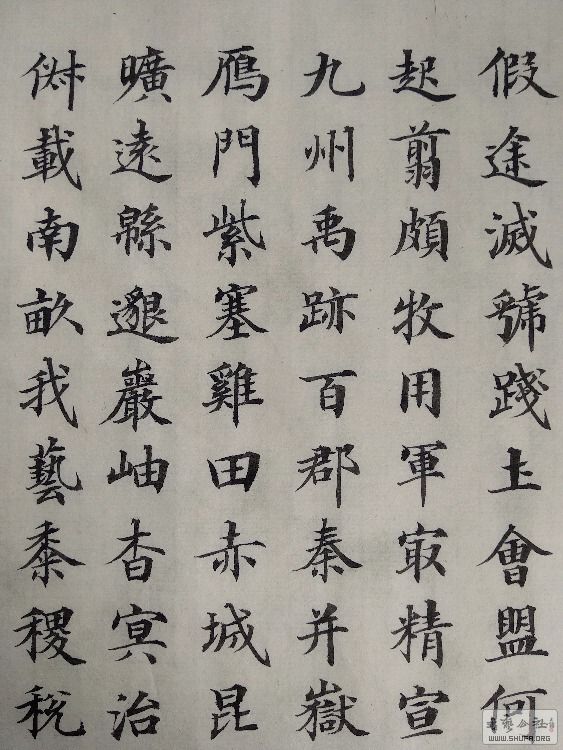 假途滅虢踐土會盟何
起翦頗牧用軍㝡精宣
九州禹跡百郡秦并嶽
鴈門紫塞雞田赤城昆
曠遠緜邈巖岫杳冥治
俶載南畝我藝黍稷稅
書藝公社
WWW.SHUFA.ORG